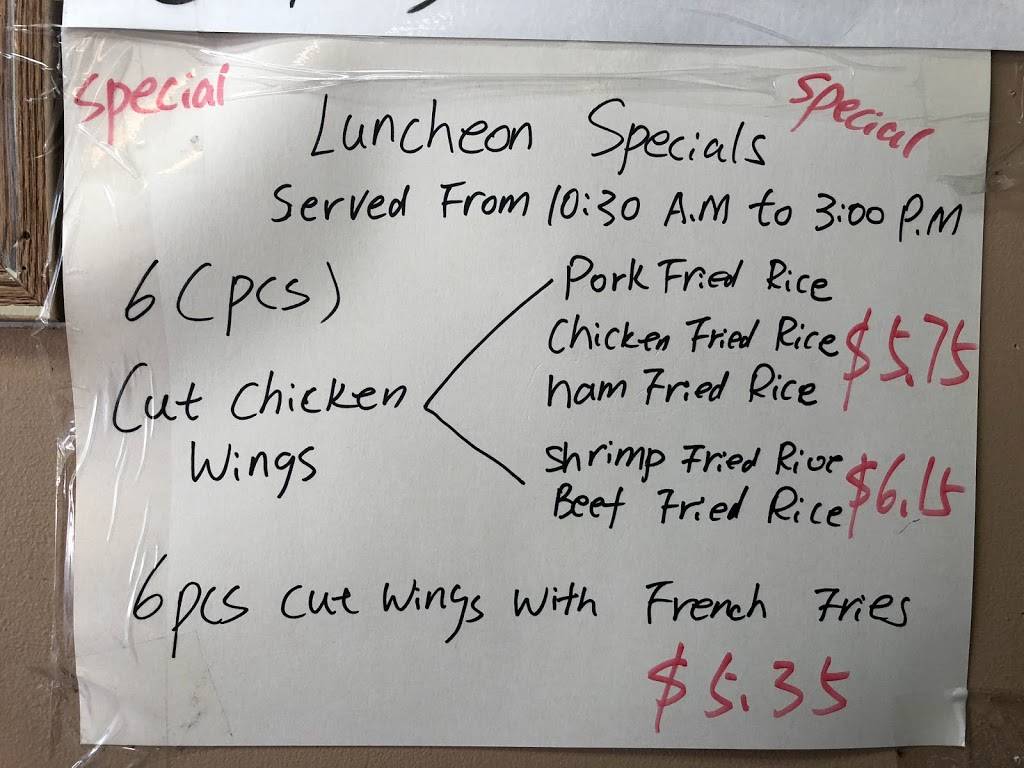 Special Special
Luncheon Specials
Served From 10:30 A.M to 3:00 P.M
6 (pcs)
Cut Chicken
Wings
Pork Fried Rice
Chicken Fried Rice
ham Fried Rice
$5.75
Shrimp Fried Rice
Beef Fried Rice
$6.15
6pcs Cut Wings With French Fries
$5.35